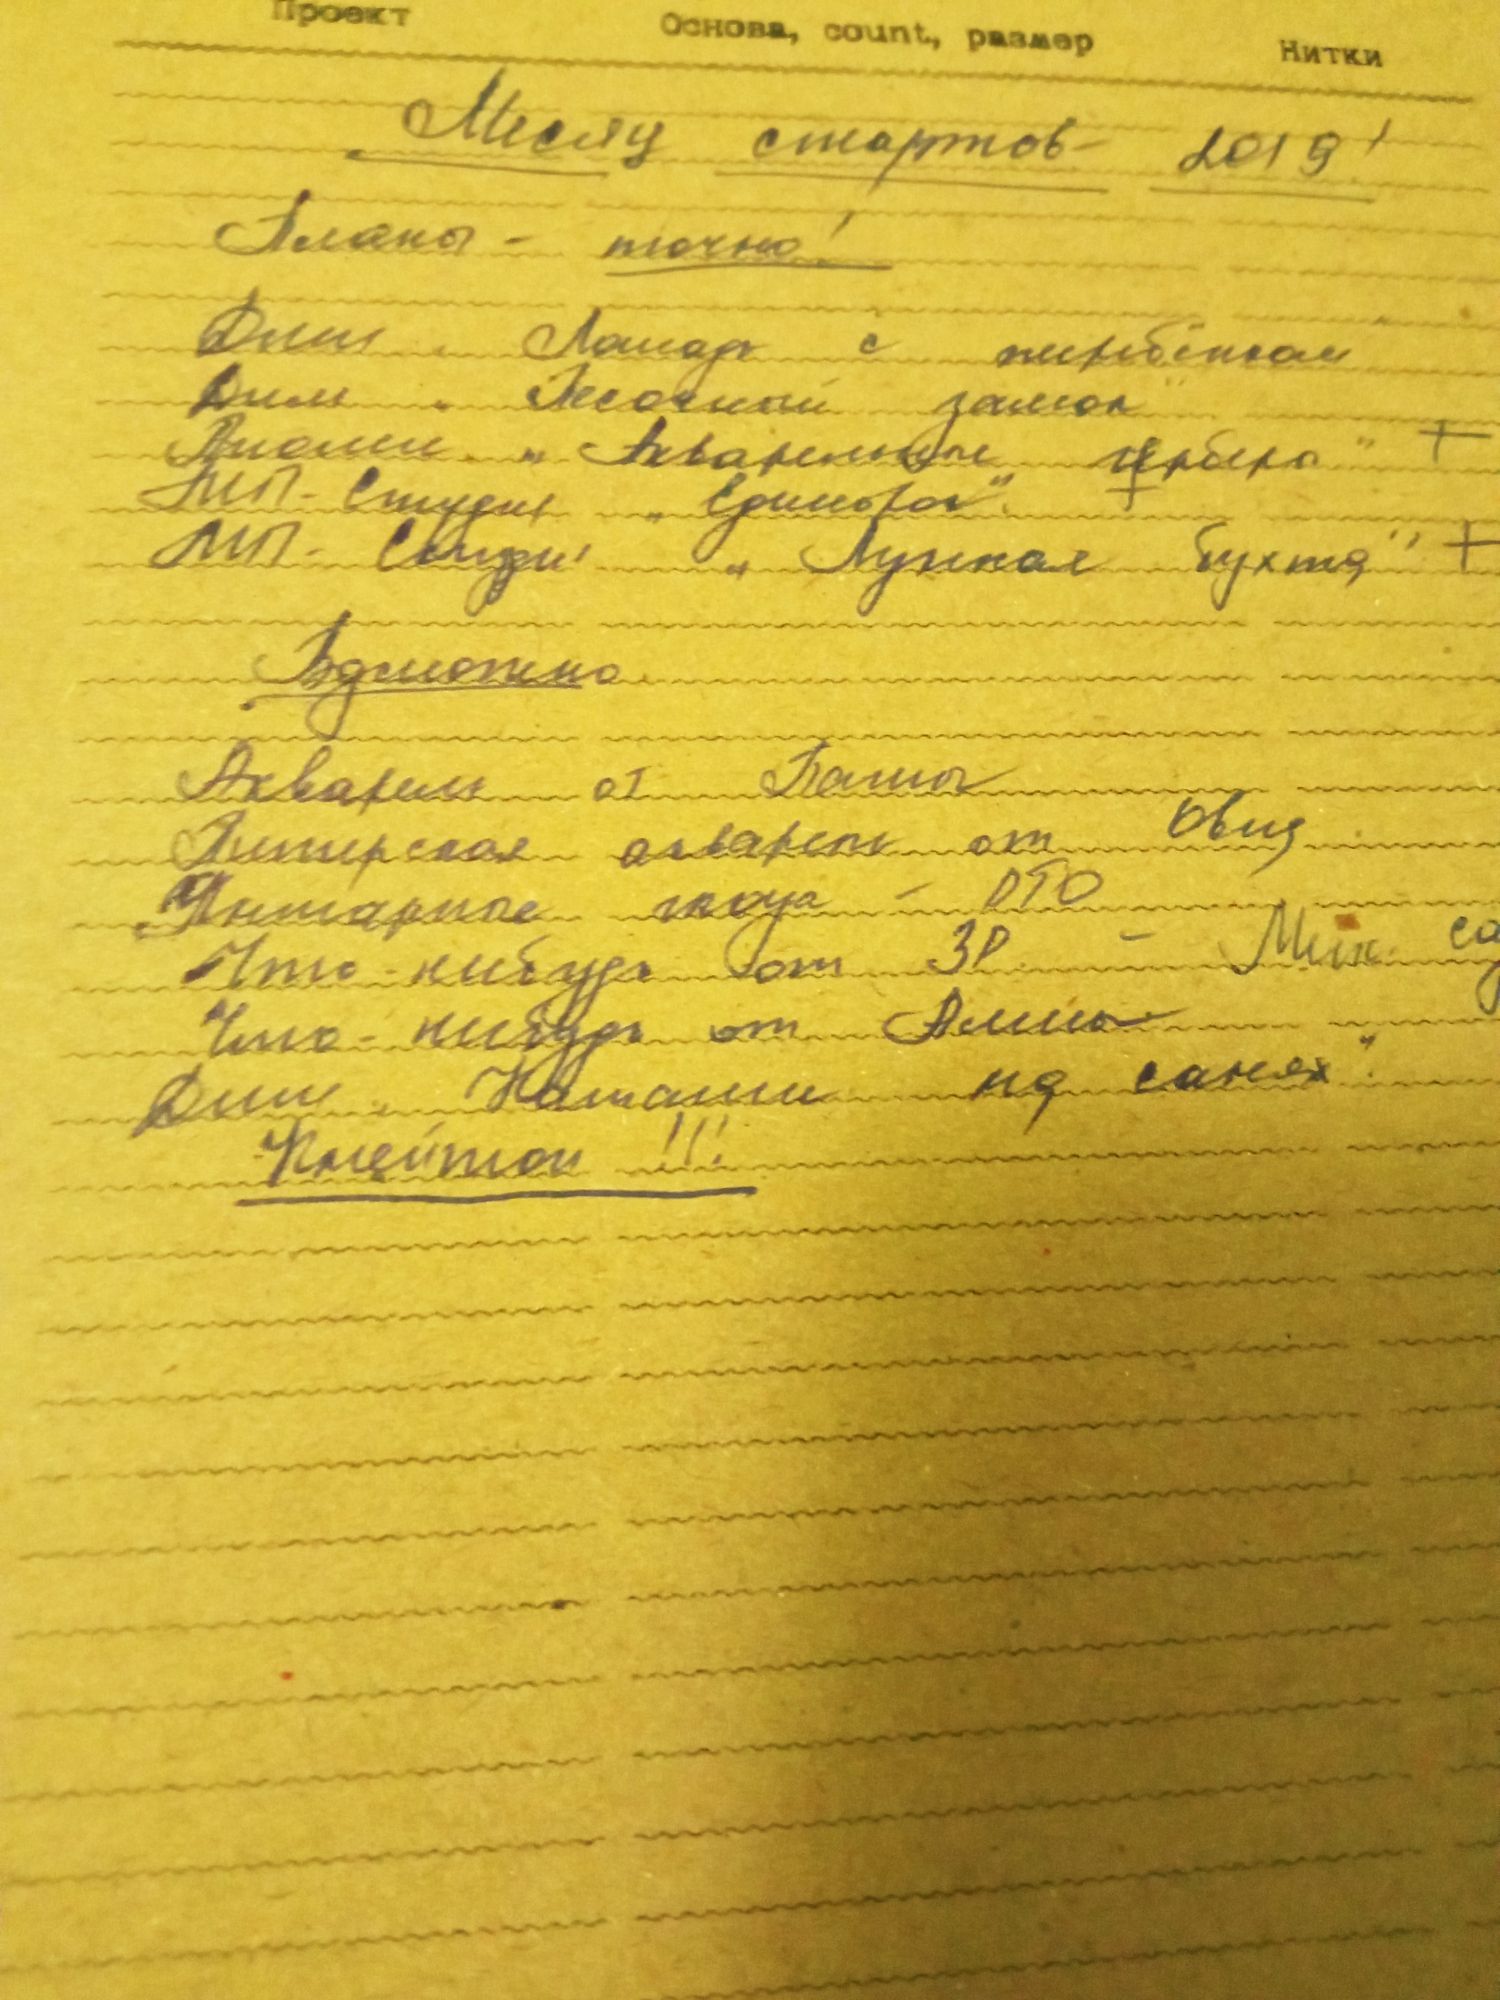 Проект Основа, count, размер Нитки
Месяц стартов 2019!
Планы - точно!
Дим „ Лошадь с жеребёнком
Дим „ Песочный замок"
Риолис „ Акварельные герберы" +
МП-Студия „ Единорог" +
МП-Студия „ Лунная бухта" +
Возможно
Акварель от Паши
Питерская акварель от Овен
Янтарные - РТО
Что-нибудь от ЗР -
Что-нибудь от Алисы
Дим „ на санях"
!!!